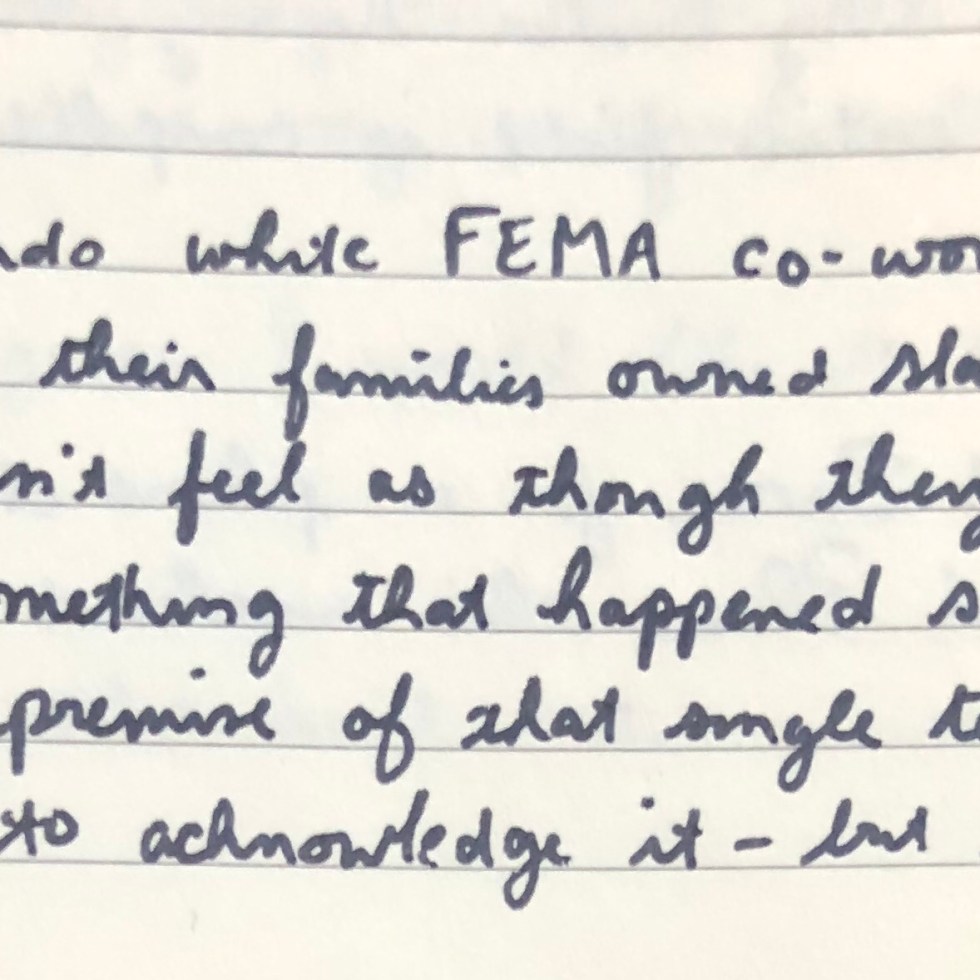 ndo while FEMA co-wor
their families owned sla
n't feel as though they
mething that happened s
premise of that single t
to acknowledge it - but